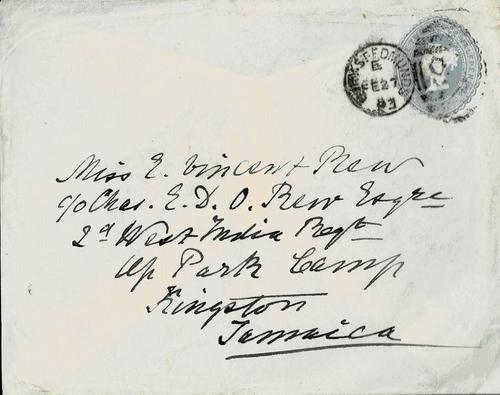 BURY ST EDMUNDS
E
FE 27
Miss E. Vincent Rew
c/o Chas. E. D. O. Rew Esqre
2d West India Regt
Up Park Camp
Kingston
Jamaica